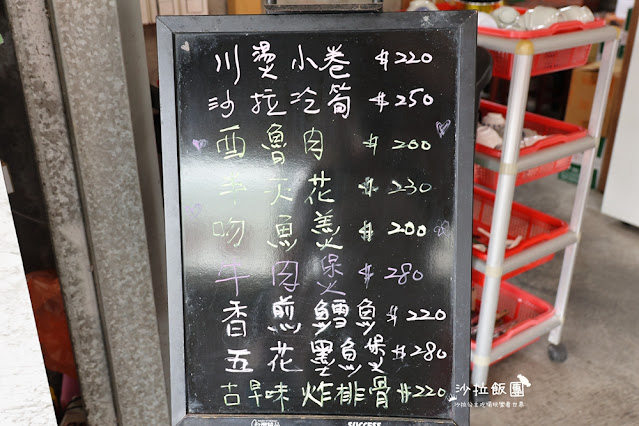 川燙小卷 #220
沙拉冷筍 #250
西魯肉 #200
半天花 #230
吻魚羹 #200
牛肉煲 #280
香煎鱈魚 #220
五花墨魚煲 #280
古早味炸排骨 #220
SUCCESS
沙拉飯團